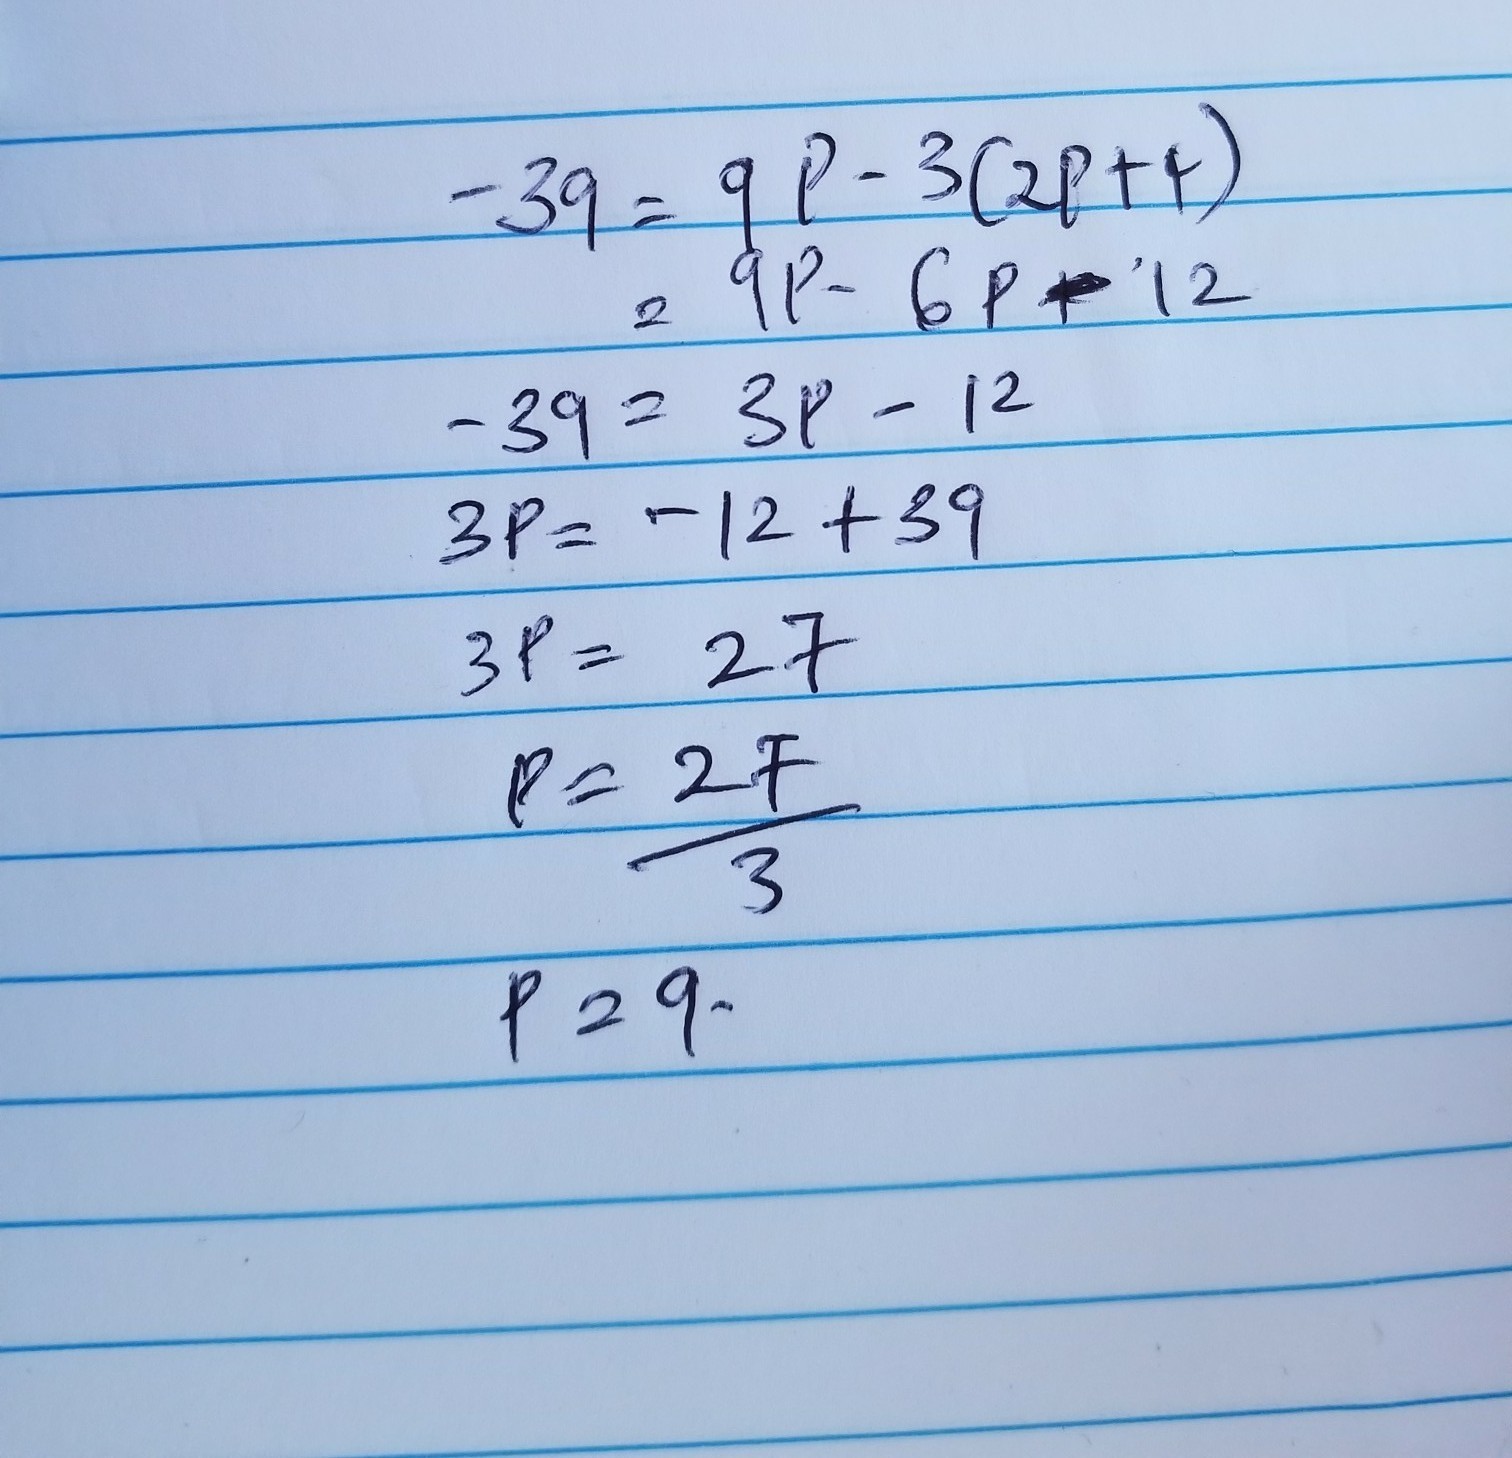 -39 = 9P - 3(2P+4)
= 9P - 6P - 12
-39 = 3P - 12
3P = -12 + 39
3P = 27
P = 27
3
P = 9.